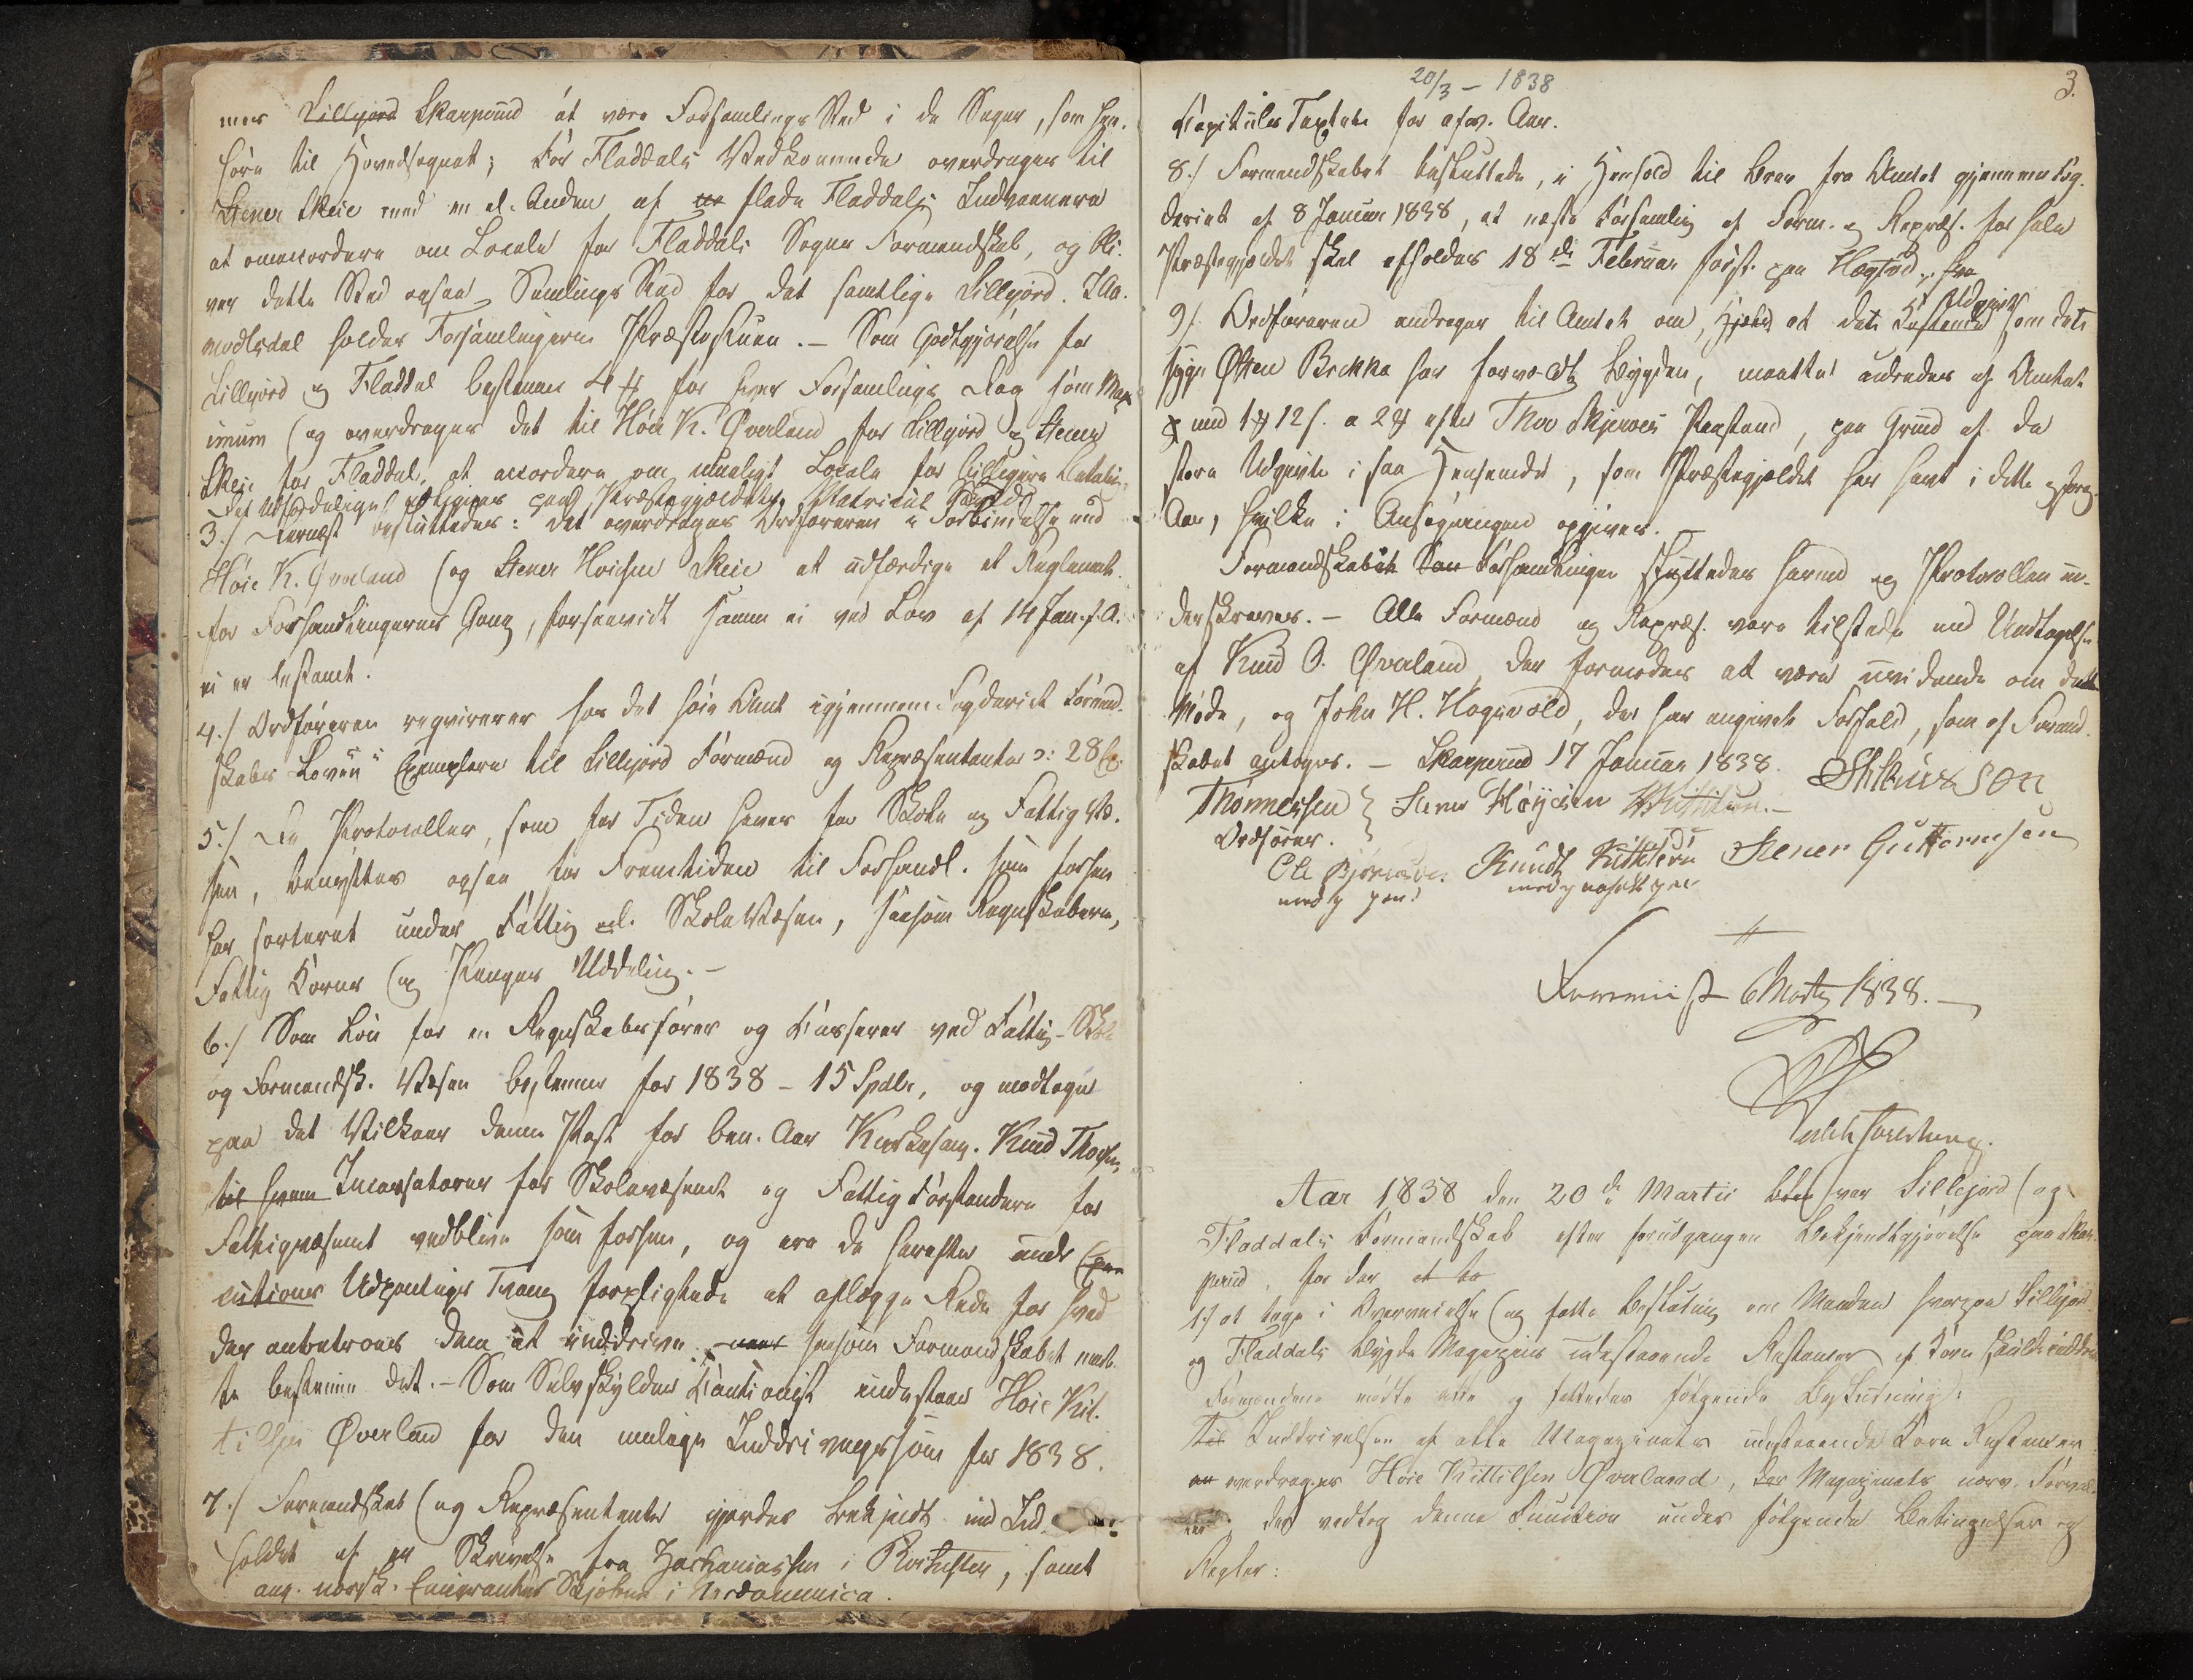 mer Lillejord Skarperud at være Forsamlings Sted i de Sager, som hen-
høre til Hovedsognet; For Fladdals Vedkommende overdrages til
Stener Skeie med en el. Anden af Fladdals Indvaanere
at omaccordere om Locale for Fladdals Sogns Formandskab, og bli-
ver dette Sted ogsaa Samlings Sted for det samtlige Sillejord. I Aa-
modtsdal holdes Forsamlingerne Præstestuen. – Som Godtgjørelse for
Sillejord og Fladdal bestemmes 4 for hver Forsamlings Dag som Max-
imum (og overdrages det til Høie K. Øverland for Sillejord og Stener
Skeie for Fladdal, at accordere om muligt Locale for billigere Betaling.
Det Udfordelige paa Præstegjældets Matricul Skyld
3./ Dernæst besluttedes: det overdrages Ordføreren i Forbindelse med
Høie K. Øverland (og Stener Hoiesen Skeie at udfærdige et Reglement
for Forhandlingernes Gang, forsaavidt samme ei ved Lov af 14 Jan. f. A.
ei er bestemt.
4./ Ordføreren reqvirerer hos det høie Amt igjennem Fogderiet Formand-
skabs Loven i Exemplarer til Sillejord Formænd og Repræsentanter ɔ: 28 Ex.
5./ De Protocoller, som for Tiden haves for Skole og Fattig Væ-
sen, benyttes ogsaa for Fremtiden til Forhandl. som forhen
har sorteret under Fattig el. Skole Væsen, saasom Regnskaberne,
Fattig Kornes (og Penges Uddeling. –
6./ Som Løn for en Regnskabsfører og Kasserer ved Fattig- Skole
og Formandsk. Væsen bestemmes for 1838 – 15 Spdlr, og modtager
paa det Vilkaar denne Post for ben. Aar Kirkesang. Knud Thorsen,
til hvem Incassatorer for Skolevæsenet og Fattig Forstandere for
Fattigvæsenet vedblive som forhen, og ere de herefter under Exe-
cutions Udpantnings Tvang forpligtede at aflægge Rede for hvad
der anbetroes dem at inddrive, naar saasom Formandskabet nær-
te bestemme det. – Som Selvskyldner Kautionist indestaaer Høie Kit-
tilsen Øverland for den mulige Inddrivningssum for 1838.
7./ Formandskab (og Repræsentanter gjordes bekjendt med Ind-
holdet af en Skrivelse fra Zachariassen i Rochester, samt
ang. norsk. Emigranters Skjebne i Nordamerica.
20/3 – 1838
3.
Kapituls Taxterne for afv. Aar.
8./ Formandskabet besluttede, i Henhold til Brev fra Amtet gjennem Fog-
deriet af 8 Januar 1838, at næste Forsamling af Form. og Repræs. for hele
Præstegjældet skal afholdes 18 de Februar først paa Hægtvd,
9./ Ordføreren andrager til Amtet om, Hjælp at det Kostende Udgivter som den
syge Østen Brekka har forvoldt Bygden, maatte udredes af Amtet
med 1 12 s. a 2 efter Thor Skjerveis Paastand, paa Grund af de
store Udgivter i saa Henseende, som Præstegjældet har havt i dette og forrige
Aar, hvilke i Ansøgningen opgives. –
Formandskabet Som Forhandlingen sluttedes hermed og Protocollen un-
derskrives. – Alle Formænd og Repræs. vare tilstede med Undtagelse
af Knud O. Øverland, der formodes at være uvidende om dette
Møde, og John H. Hogevold, der har angivet Forfald, som af Formand-
skabet antoges. – Skarperud 17 Januar 1838.
Thønnessen } Stener Høyesen
Ordfører.
Ole Bjørnsen Knudt Kittilsen Stener Guttormsen
med p. pen med paaholt pen
Fremvist 6 Marts 1838. –
Aar 1838 den 20 de Martii blev var Sillejord (og
Fladdals Formandskab efter forudgangen Bekjendtgjørelse paa Skar-
perud, for der at to
1./ at tage i Overveielse (og fatte Beslutning om Maaden hvorpaa Sillejord
og Fladdals Bygde Magazins udestaaende Restancer af Korn skulde inddri
Formændene mødte alle og fattedes følgende Beslutning:
Til Inddrivelsen af alle Magazinets udestaaende Korn Restancer
an overdrages Høie Kittilsen Øverland, der Magazinets nærv. Forval-
ter; der vedtog denne Function under følgende Betingelser og
Regler: